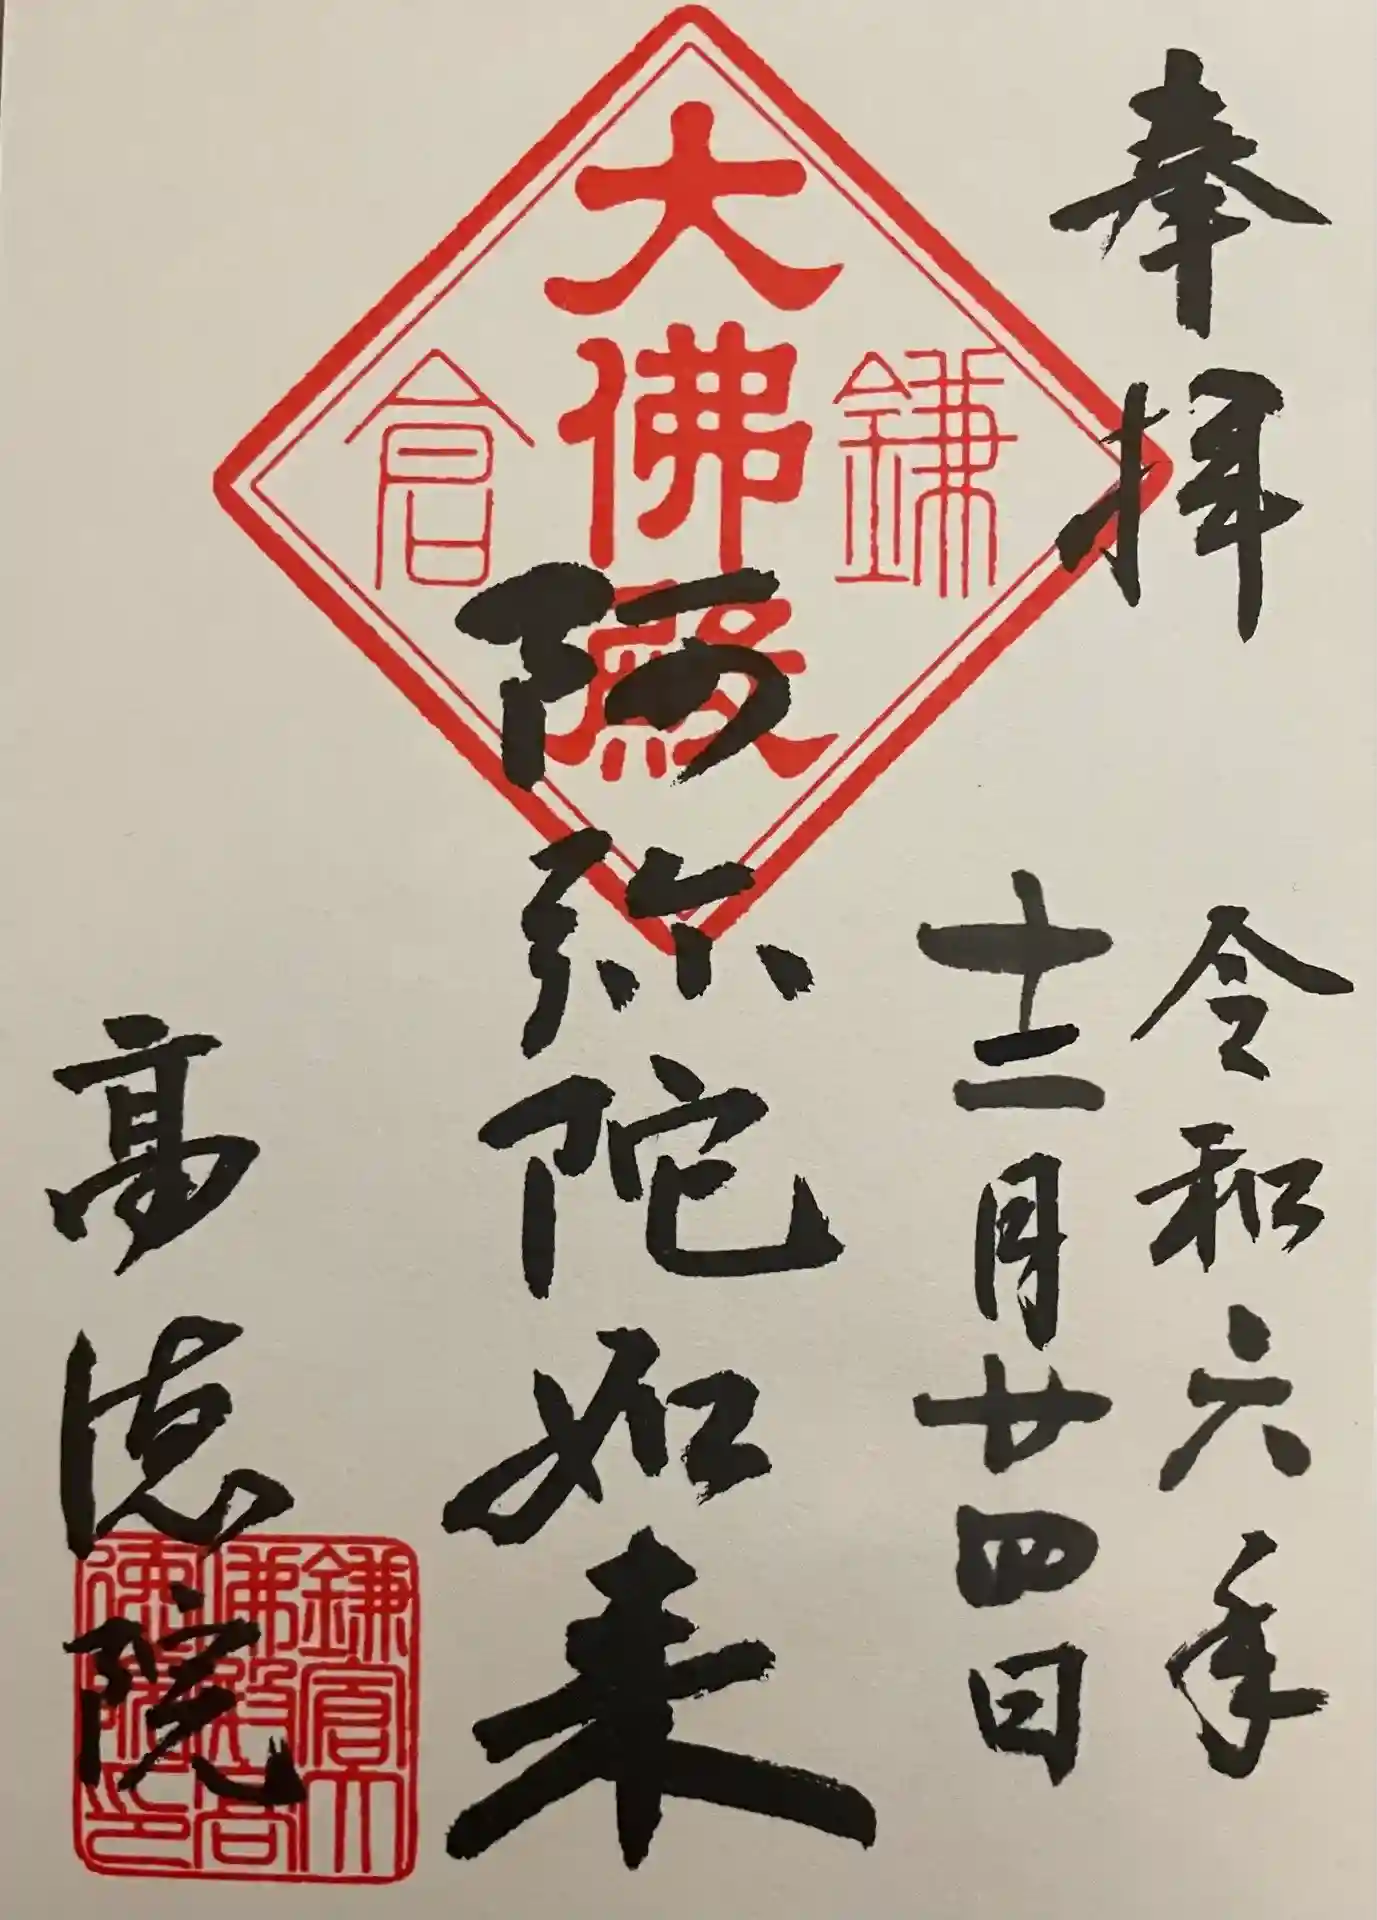 奉拝
令和六年
十二月廿四日
鎌倉
大佛殿
阿弥陀如来
高徳院
鎌倉大
佛殿高
徳院印